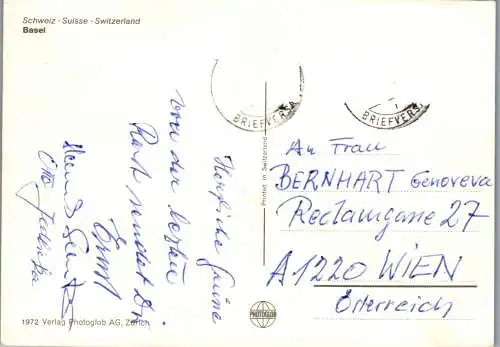 Schweiz - Suisse - Switzerland
Basel
Herzliche Grüße
von der letzten
Rast sendet Dir
Ernst
BRIEFVERSA
BRIEFVERS
Printed in Switzerland
An Frau
BERNHART Genoveva
Reclamgasse 27
A1220 WIEN
Österreich
1972 Verlag Photoglob AG, Zürich
PHOTOGLOB